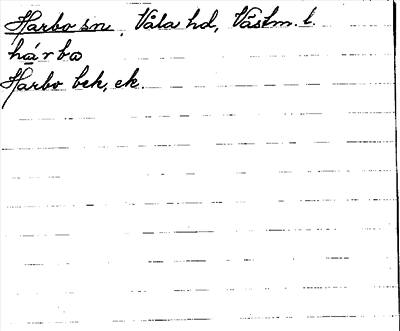 Harbo sn, Våla hd, Västm. l.
hárba
Harbo bek, ek.